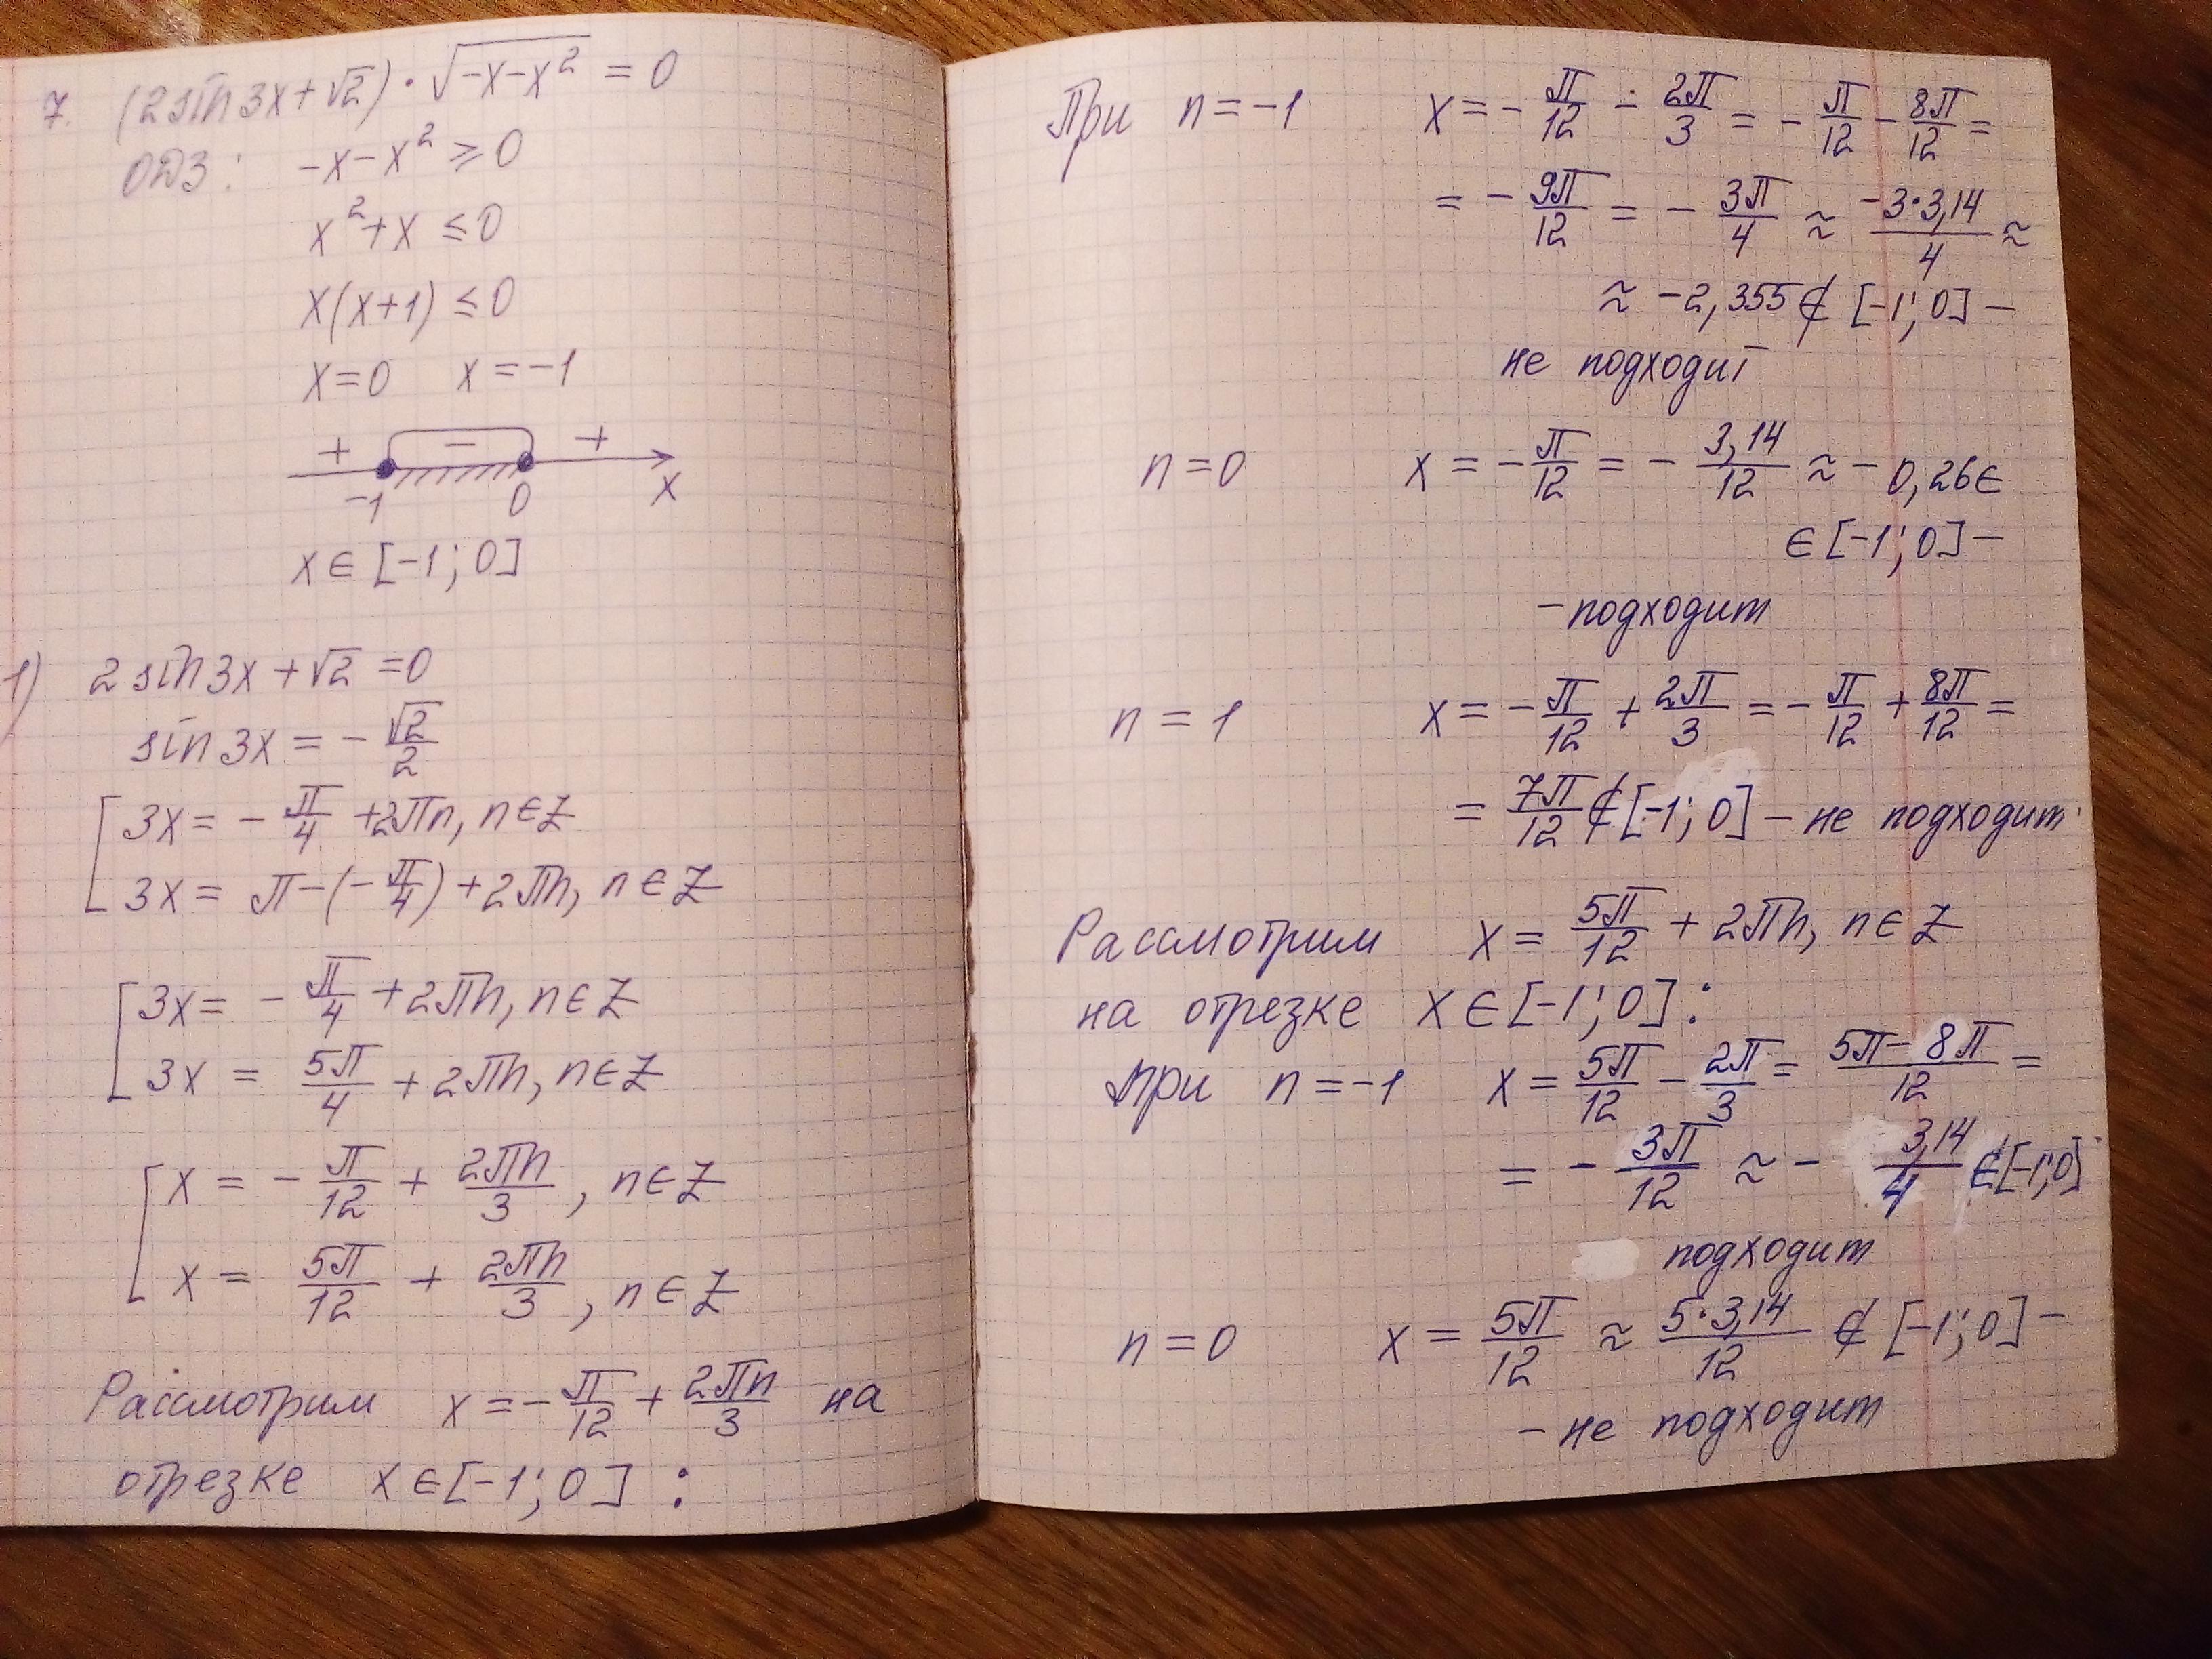 7. (2 sin 3x + √2) · √(-x-x²) = 0
ОДЗ: -x-x² ≥ 0
x²+x ≤ 0
x(x+1) ≤ 0
x=0 x=-1
+ - +
-1 0 x
x ∈ [-1; 0]
1) 2 sin 3x + √2 = 0
sin 3x = - √2/2
[ 3x = - π/4 + 2πn, n ∈ Z
3x = π-(-π/4) + 2πn, n ∈ Z
[ 3x = - π/4 + 2πn, n ∈ Z
3x = 5π/4 + 2πn, n ∈ Z
[ x = - π/12 + 2πn/3, n ∈ Z
x = 5π/12 + 2πn/3, n ∈ Z
Рассмотрим x = - π/12 + 2πn/3 на
отрезке x ∈ [-1; 0] :
При n = -1 x = - π/12 - 2π/3 = - π/12 - 8π/12 =
= - 9π/12 = - 3π/4 ≈ -3·3,14/4 ≈
≈ -2,355 ∉ [-1; 0] -
не подходит
n = 0 x = - π/12 = - 3,14/12 ≈ - 0,26 ∈
∈ [-1; 0] -
- подходит
n = 1 x = - π/12 + 2π/3 = - π/12 + 8π/12 =
= 7π/12 ∉ [-1; 0] - не подходит
Рассмотрим x = 5π/12 + 2πn, n ∈ Z
на отрезке x ∈ [-1; 0] :
при n = -1 x = 5π/12 - 2π/3 = 5π-8π/12 =
= - 3π/12 ≈ - 3,14/4 ∈ [-1; 0]
подходит
n = 0 x = 5π/12 ≈ 5·3,14/12 ∉ [-1; 0] -
- не подходит